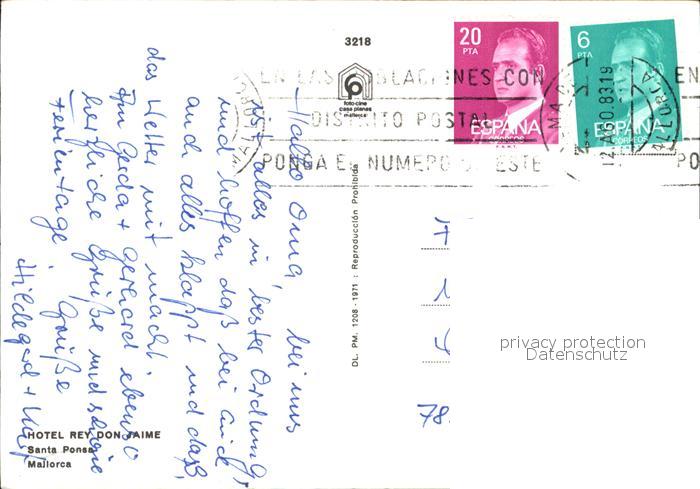 3218
20
PTA
6
PTA
ESPAÑA
CORREOS
ESPAÑA
CORREOS
EN LAS POBLACIONES CON
DISTRITO POSTAL
PONGA EL NUMERO DE ESTE
EN
PO
12 AGO.83 19
MALLORCA
foto-cine
casa planas
mallorca
DL. PM. 1208 - 1971 : Reproducción Prohibida
Hallo Oma, bei uns
ist alles in bester Ordnung,
und hoffen daß bei euch
auch alles klappt und daß
das Wetter mit macht.
Gerda + Gerhard ebenso
herzliche Grüße und schöne
Ferientage
Grüße
Hildegard +
78
HOTEL REY DON JAIME
Santa Ponsa
Mallorca
privacy protection
Datenschutz